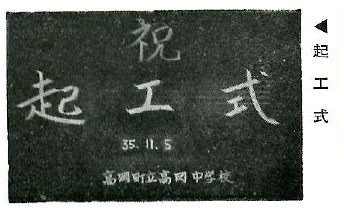 祝
起工式
35.11.5
高岡町立高岡中学校
◀起工式